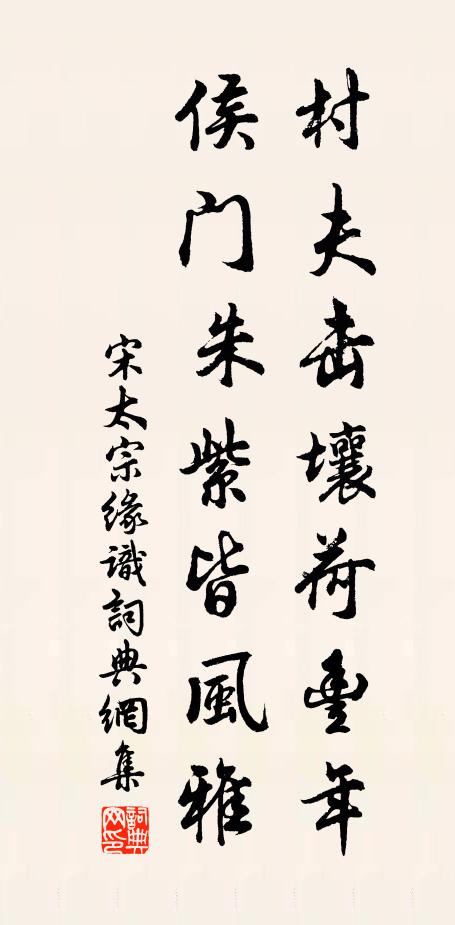 村夫击壤荷豐年
侯门朱紫皆風雅
宋太宗緣識詞典網集
詞典网印